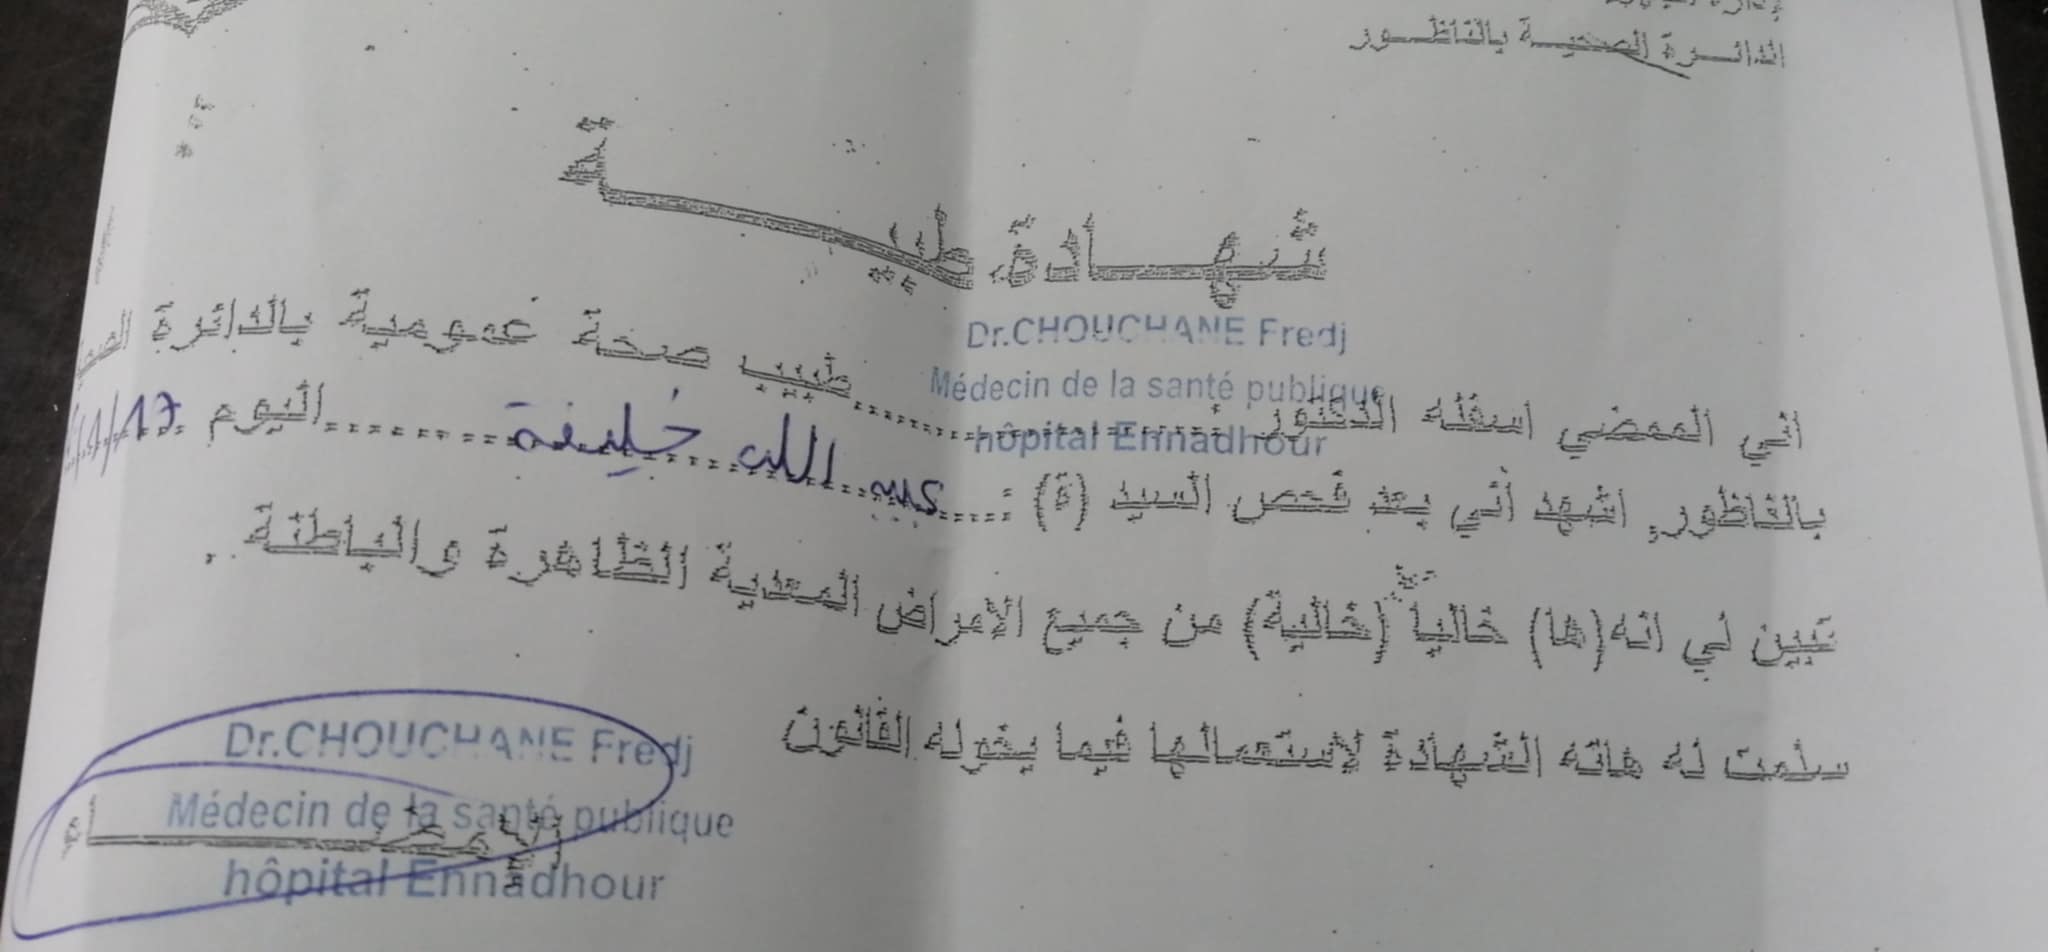 الدائرة الصحية بالناظور
شهادة طبية
Dr.CHOUCHANE Fredj
Médecin de la santé publique
hôpital Ennadhour
اني الممضي اسفله الدكتور : طبيب صحة عمومية بالدائرة
بالناظور, اشهد أني بعد فحص السيد (ة) : عبد الله خليفة اليوم
تبين لي انه(ها) خالياً (خالية) من جميع الامراض المعدية الظاهرة والباطنة .
سلمت له هاته الشهادة لاستعمالها فيما يخوله القانون
الإمضاء
Dr.CHOUCHANE Fredj
Médecin de la santé publique
hôpital Ennadhour